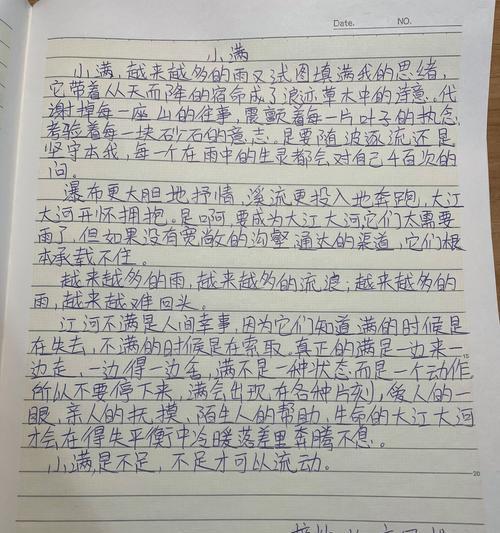 Date. NO.
小满
小满，越来越多的雨又试图填满我的思绪，
它带着从天而降的宿命成了浪迹草木中的诗意。代
谢掉每一座山的往事，震颤着每一片叶子的执念，
考验着每一块砂石的意志。是要随波逐流还是
坚守本我，每一个在雨中的生灵都会对自己千百次的
问。
瀑布更大胆地抒情，溪流更投入地奔跑，大江
大河开怀拥抱。是啊，要成为大江大河，它们太需要
雨了，但如果没有宽敞的沟壑，通达的渠道，它们根
本承载不住。
越来越多的雨，越来越多的流浪；越来越多的
雨，越来越难回头。
江河不满是人间幸事，因为它们知道满的时候是
在失去，不满的时候是在索取。真正的满是一边来一
边走，一边得一边舍，满不是一种状态而是一个动作
所以不要停下来，满会出现在各种片刻，爱人的一
眼，亲人的抚摸、陌生人的帮助，生命的大江大河
才会在得失平衡中冷暖落差里奔腾不息。
小满，是不足，不足才可以流动。
15
20